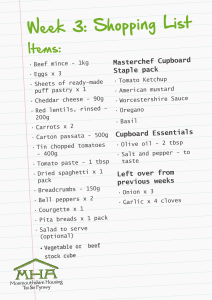 Week 3: Shopping List
Items:
· Beef mince - 1kg
· Eggs x 3
· Sheets of ready-made
puff pastry x 1
· Cheddar cheese - 90g
· Red lentils, rinsed -
200g
· Carrots x 2
· Carton passata - 500g
· Tin chopped tomatoes
- 400g
· Tomato paste - 1 tbsp
· Dried spaghetti x 1
pack
· Breadcrumbs - 150g
· Bell peppers x 2
· Courgette x 1
· Pita breads x 1 pack
· Salad to serve
(optional)
• Vegetable or beef
stock cube
Masterchef Cupboard
Staple pack
· Tomato Ketchup
· American mustard
· Worcestershire Sauce
· Oregano
· Basil
Cupboard Essentials
· Olive oil - 2 tbsp
· Salt and pepper - to
taste
Left over from
previous weeks
· Onion x 3
· Garlic x 4 cloves
MHA
Monmouthshire Housing
Tai Sir Fynwy